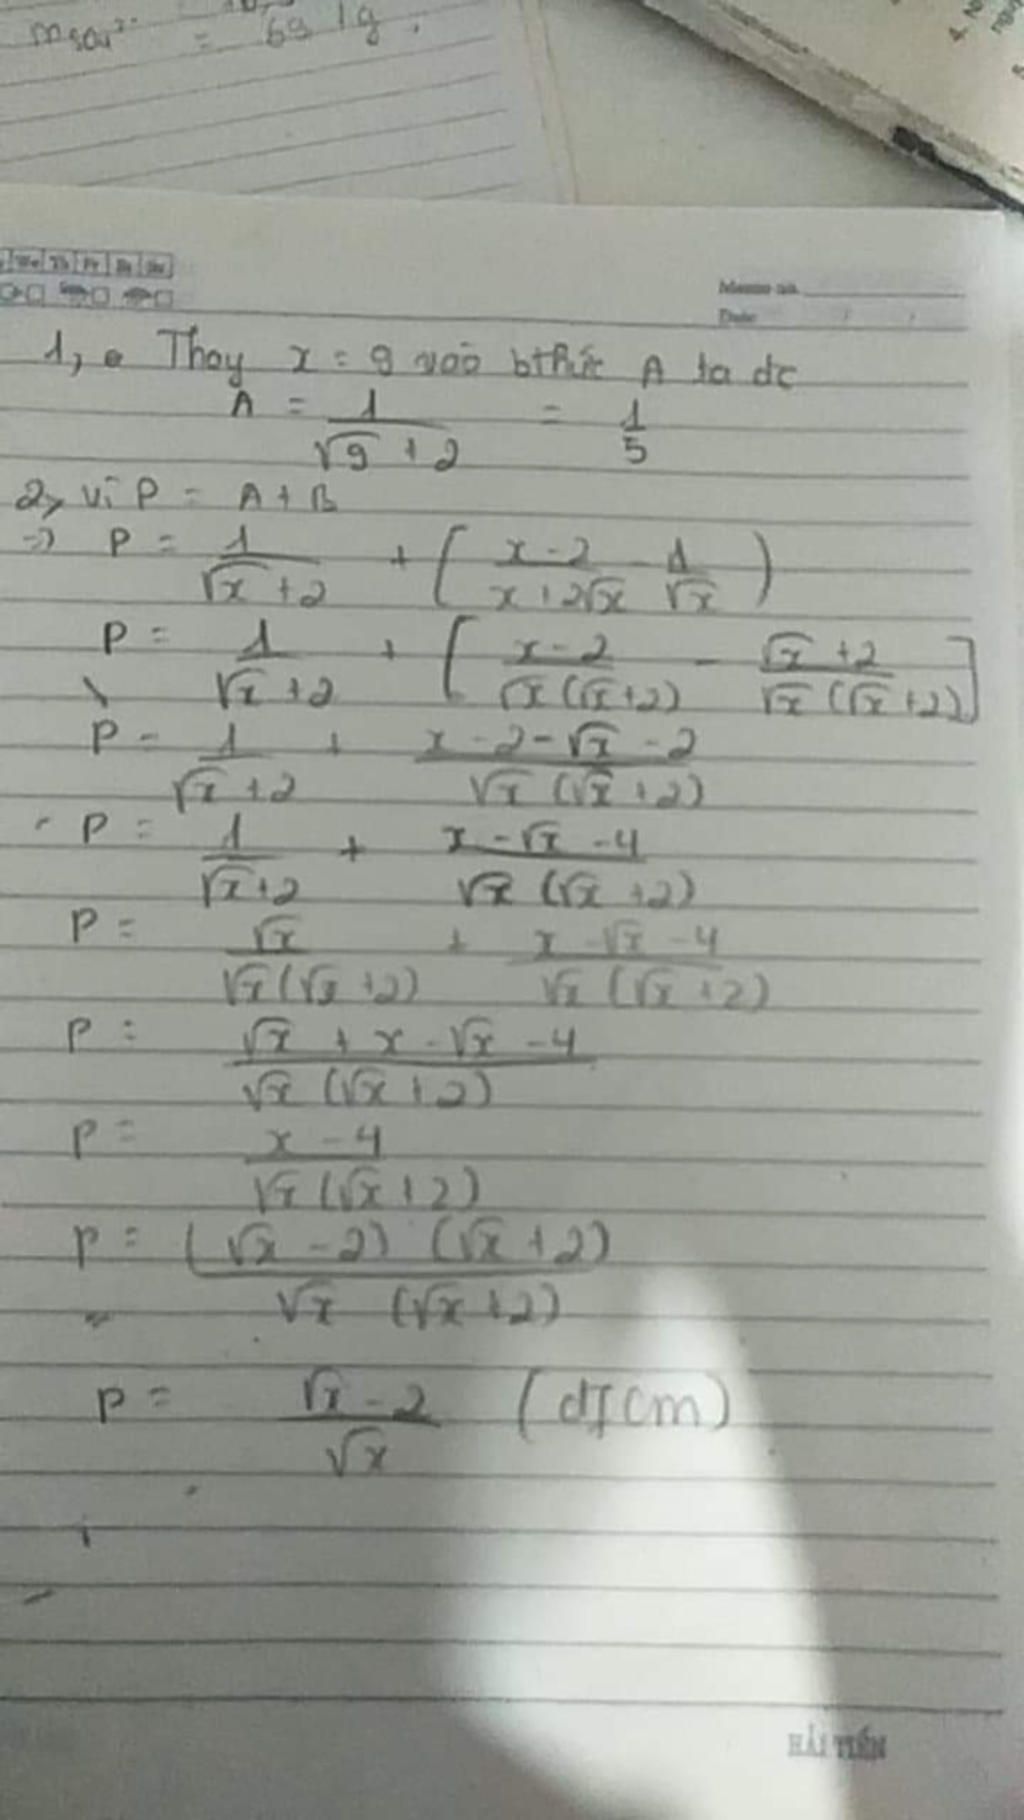 mSO4²⁻ = 69 1g.
Memo no.
Date
1, a Thay x = 9 vào bthức A ta dc
A = 1/(√9 + 2) = 1/5
2, vì P = A + B
=> P = 1/(√x + 2) + (x - 2/(x + 2√x) - 1/√x)
P = 1/(√x + 2) + [x - 2/(√x (√x + 2)) - (√x + 2)/(√x (√x + 2))]
P = 1/(√x + 2) + (x - 2 - √x - 2)/(√x (√x + 2))
P = 1/(√x + 2) + (x - √x - 4)/(√x (√x + 2))
P = √x/(√x (√x + 2)) + (x - √x - 4)/(√x (√x + 2))
P = (√x + x - √x - 4)/(√x (√x + 2))
P = (x - 4)/(√x (√x + 2))
P = (√x - 2) (√x + 2)/(√x (√x + 2))
P = (√x - 2)/√x (đfcm)
HẢI TIẾN